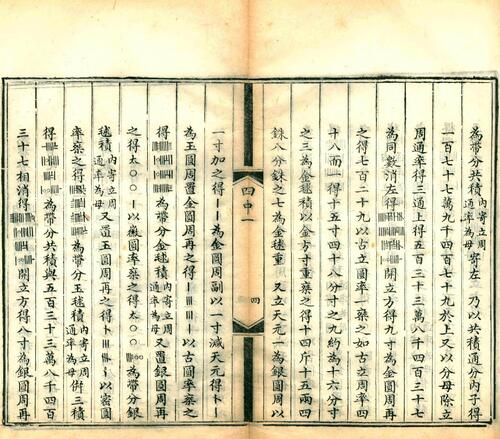 為帶分共積內寄立周通率為母寄左乃以共積通分內子得
一百七十七萬九千四百七十九於上又以分母除立
周通率得三通上得五百三十三萬八千四百三十七
為同數消左得開立方得九寸為金圓周再
之得七百二十九以古立圓率一乘之如古立周率四
十八而一得十五寸四十八分寸之九約為十六分寸
之三為金毬積以金方寸重乘之得十四斤十五兩四
銖八分銖之七為金毬重又立天元一為銀圓周以
四中一
四
一寸加之得為金圓周副以一寸減天元得
為玉圓周置金圓周再之得以古圓率乘之
得為帶分金毬積內寄立周通率為母又置銀圓周再
之得太〇〇〇以徽圓率乘之得太〇〇〇為帶分銀
毬積內寄立周通率為母又置玉圓周再之得以密圓
率乘之得為帶分玉毬積內寄立周通率為母併三積
得為帶分共積與五百三十三萬八千四百
三十七相消得開立方得八寸為銀圓周再